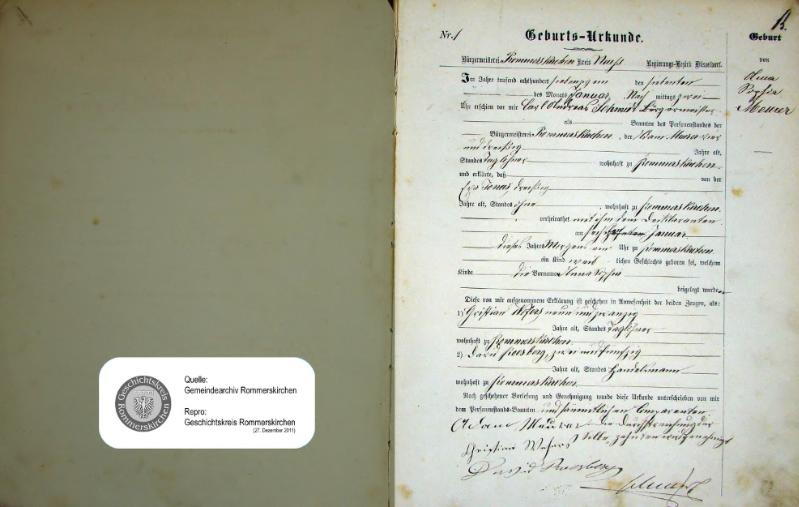 Geschichtskreis Rommerskirchen
Quelle:
Gemeindearchiv Rommerskirchen
Repro:
Geschichtskreis Rommerskirchen
(27. Dezember 2011)
Nr. 1
Geburts-Urkunde.
Bürgermeisterei Rommerskirchen Kreis Neuß Regierungs-Bezirk Düsseldorf.
Im Jahre tausend achthundert siebenzig den
des Monats Januar, Nach mittags zwei
Uhr erschien vor mir Carl Andreas Schmitz Bürgermeister
als Beamten des Personenstandes der
Bürgermeisterei Rommerskirchen, der Adam Meurer vier
und dreißig Jahre alt,
Standes Taglöhner wohnhaft zu Rommerskirchen
und erklärte, daß von der
dreißig
Jahre alt, Standes ohne, wohnhaft zu Rommerskirchen
verheirathet mit ihm dem Declaranten
am Januar
dieses Jahres Morgens ein Uhr zu Rommerskirchen
ein Kind weib lichen Geschlechts geboren sei, welchem
Kinde die Vornamen Anna Sophia
beigelegt werden
Diese von mir aufgenommene Erklärung ist geschehen in Anwesenheit der beiden Zeugen, als:
1) Christian neun und zwanzig
Jahre alt, Standes Taglöhner
wohnhaft zu Rommerskirchen.
2) David zwei und fünfzig
Jahre alt, Standes Handelsmann
wohnhaft zu Rommerskirchen
Nach geschehener Vorlesung und Genehmigung wurde diese Urkunde unterschrieben von mir
dem Personenstands-Beamten und sämmtlichen Comparenten
Adam Meurer
Christian
David
Geburt
von
Anna
Sophia
Meurer